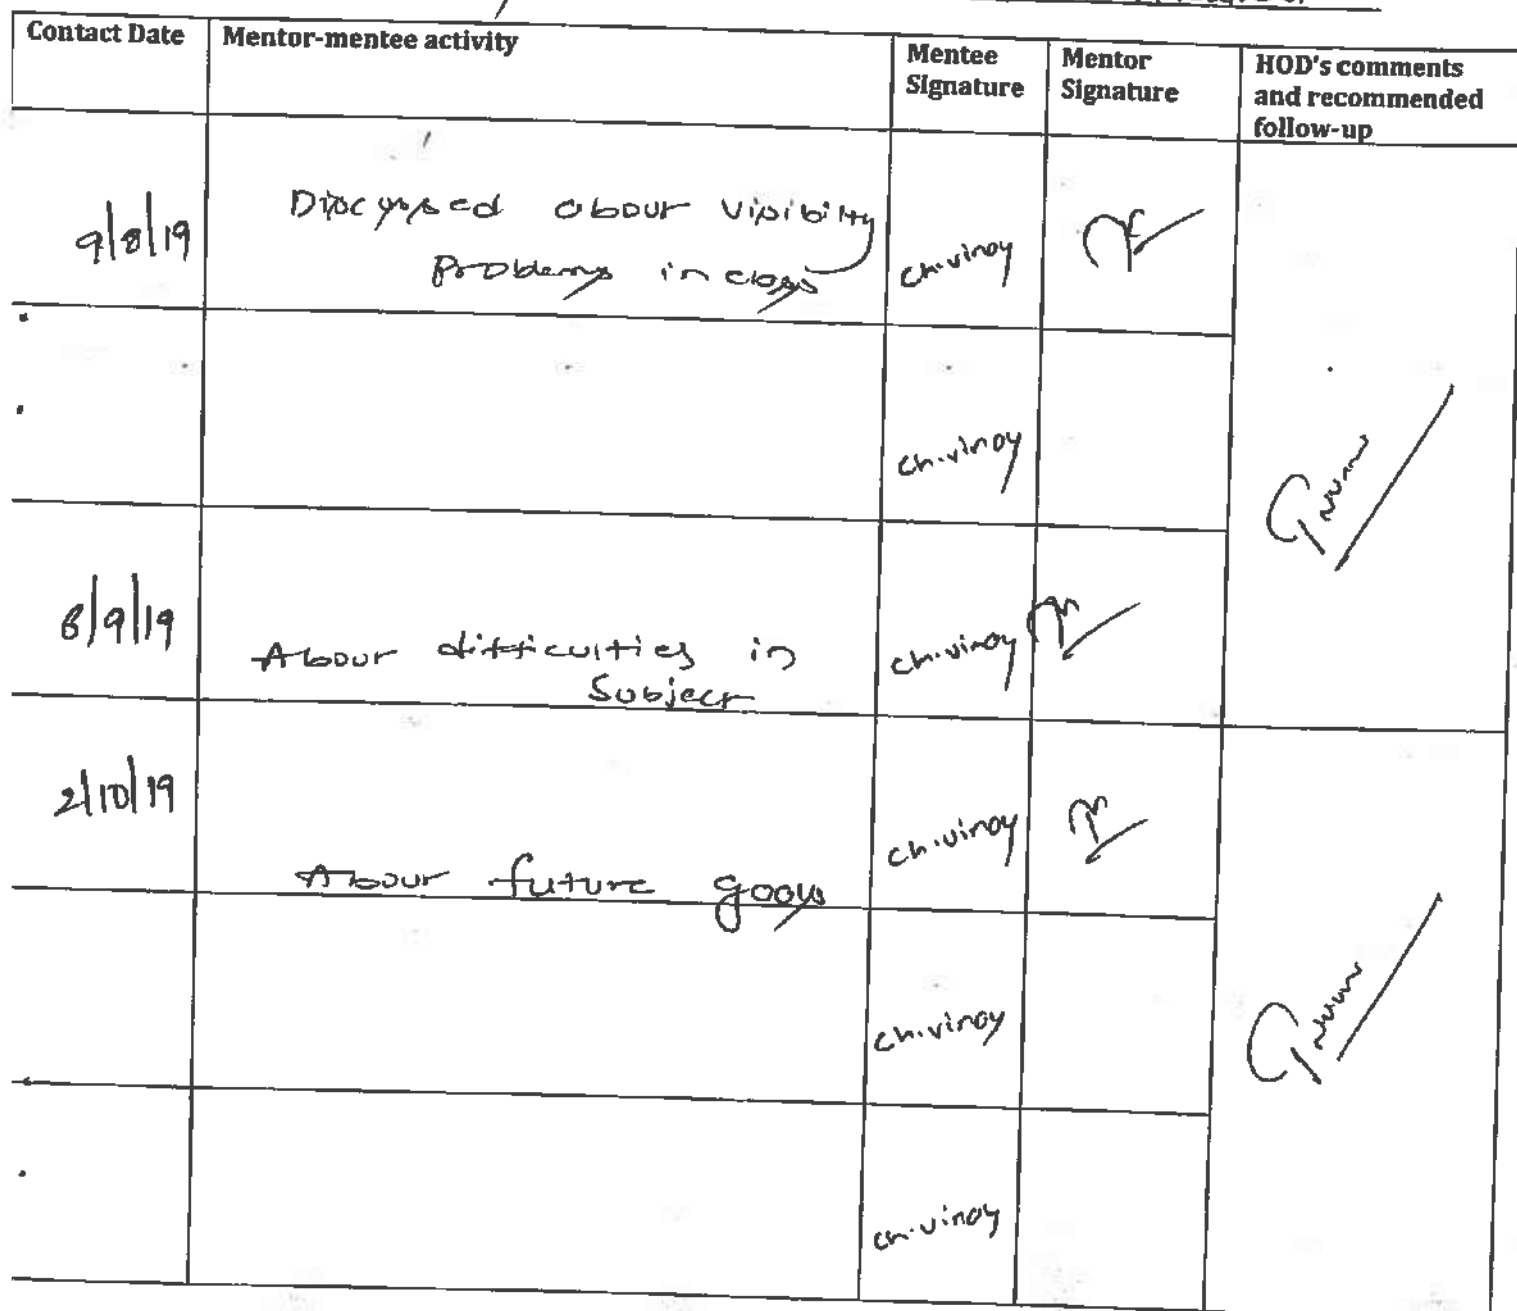 Contact Date
Mentor-mentee activity
Mentee
Signature
Mentor
Signature
HOD's comments
and recommended
follow-up
9/8/19
Discussed about visibility
problems in class
ch.vinay
ch.vinay
8/9/19
About difficulties in
Subject
ch.vinay
2/10/19
About future goals
ch.vinay
ch.vinay
ch.vinay